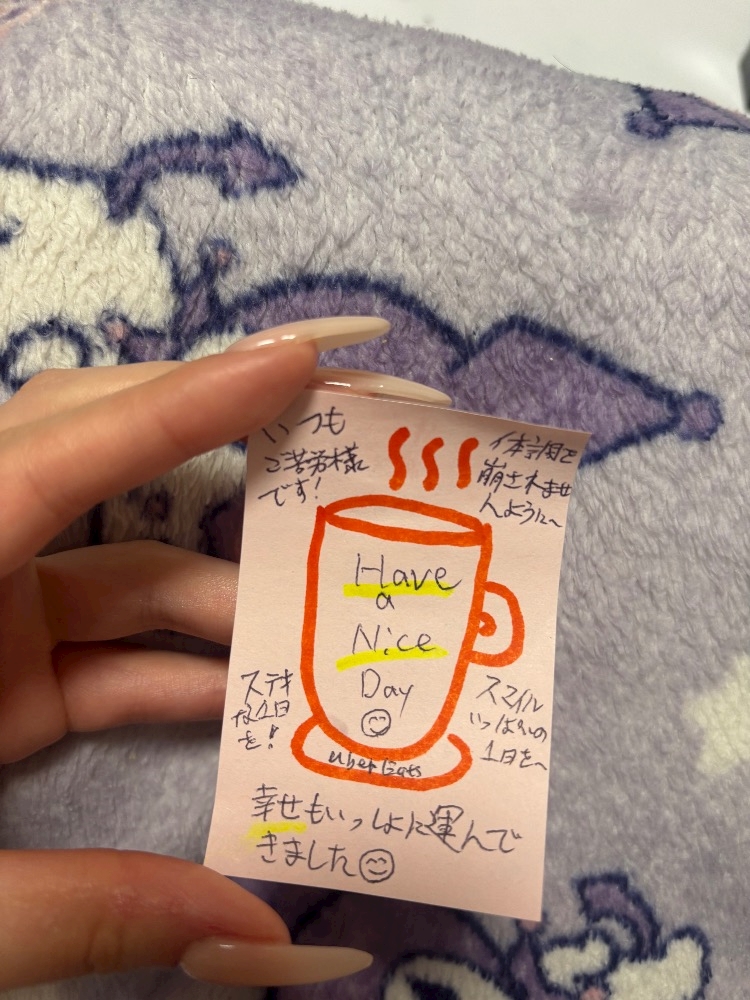 いつも
ご苦労様
です!
体調を
崩されませ
んように〜
Have
a
Nice
Day
ステキ
な1日
を!
スマイル
いっぱいの
1日を〜
Uber Eats
幸せもいっしょに運んで
きました